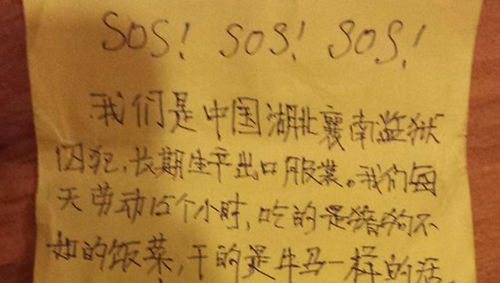 SOS! SOS! SOS!
我们是中国湖北襄南监狱
囚犯,长期生产出口服装。我们每
天劳动15个小时,吃的是猪狗不
如的饭菜,干的是牛马一样的活